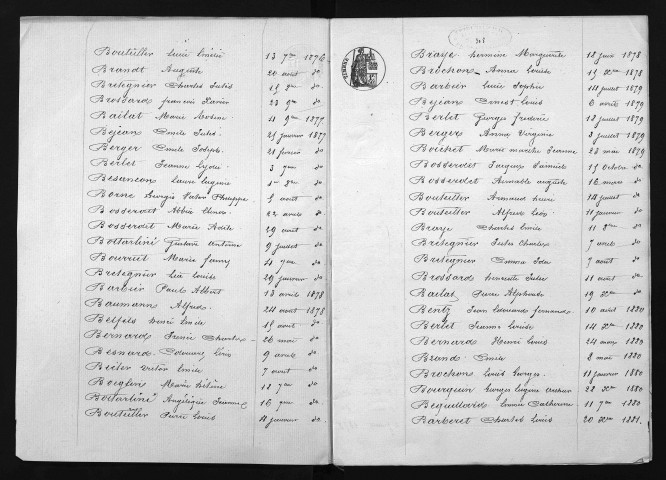 Bouteiller Lucie Emélie 13 7bre 1876
Brandt Auguste 20 août do
Bretegnier Charles Jules 15 9bre do
Brossard françois Xavier 23 9bre do
Bailat Marie 4 9bre 1877
Bejean Emile Jules 21 janvier 1877
Berger Emile Joseph 21 février do
Berlet Jeanne Lydie 3 do
Besançon Laure Eugénie do
Borne Georges Victor Philippe 5 août do
Bosserdet Abbie 22 avril do
Bosserdet Marie Adèle 29 août do
Bottarlini Gustave Antoine 9 juillet do
Bourriet Marie fanny 4 do
Bretegnier Lia Louise 29 janvier do
Barbier Paul Albert 13 avril 1878
Baumann Alfred 24 août 1878
Belfils Emile 15 août do
Bernard Charles 26 mai do
Besnard Edouard Léon 9 avril do
Beiler Emile 7 août do
Boeglin Marie Hélène 12 do
Bottarlini Angélique Jeanne 16 do
Bouteiller Pierre Louis 4 janvier do
308
TIMBRE
Braye Hermine Marguerite 18 juin 1878
Brochon Anna Louise 15 Xbre 1878
Barbier Lucie Sophie 14 juillet 1879
Bejean Ernest Louis 6 avril 1879
Berlet Georges Frédéric 12 juillet 1879
Berger Anna Virginie 3 juillet 1879
Boichet Marie Jeanne 23 mai 1879
Bosserdet Jacques Samuel 15 octobre do
Bosserdet Armable auguste 16 mars do
Bouteiller Armand 14 juillet do
Bouteiller Alfred Léon 11 janvier do
Braye Charles Emile 11 do
Bretegnier Jules Charles 7 avril do
Bretegnier Emma Ida 7 août do
Brossard Henriette Julie 11 août do
Bailat Pierre Alphonse 19 Xbre do
Bentz Jean Edouard fernand 10 août 1880
Berlet Jeanne Louise 14 Xbre do
Bernard Henri Louis 24 mars 1880
Brand Emile 2 mai 1880
Brochon Louis Georges 11 janvier 1880
Bourquin Georges Eugène Arthur 22 Xbre 1880
Bequillard Louise Catherine 11 1880
Barberet Charles Louis 20 1881.